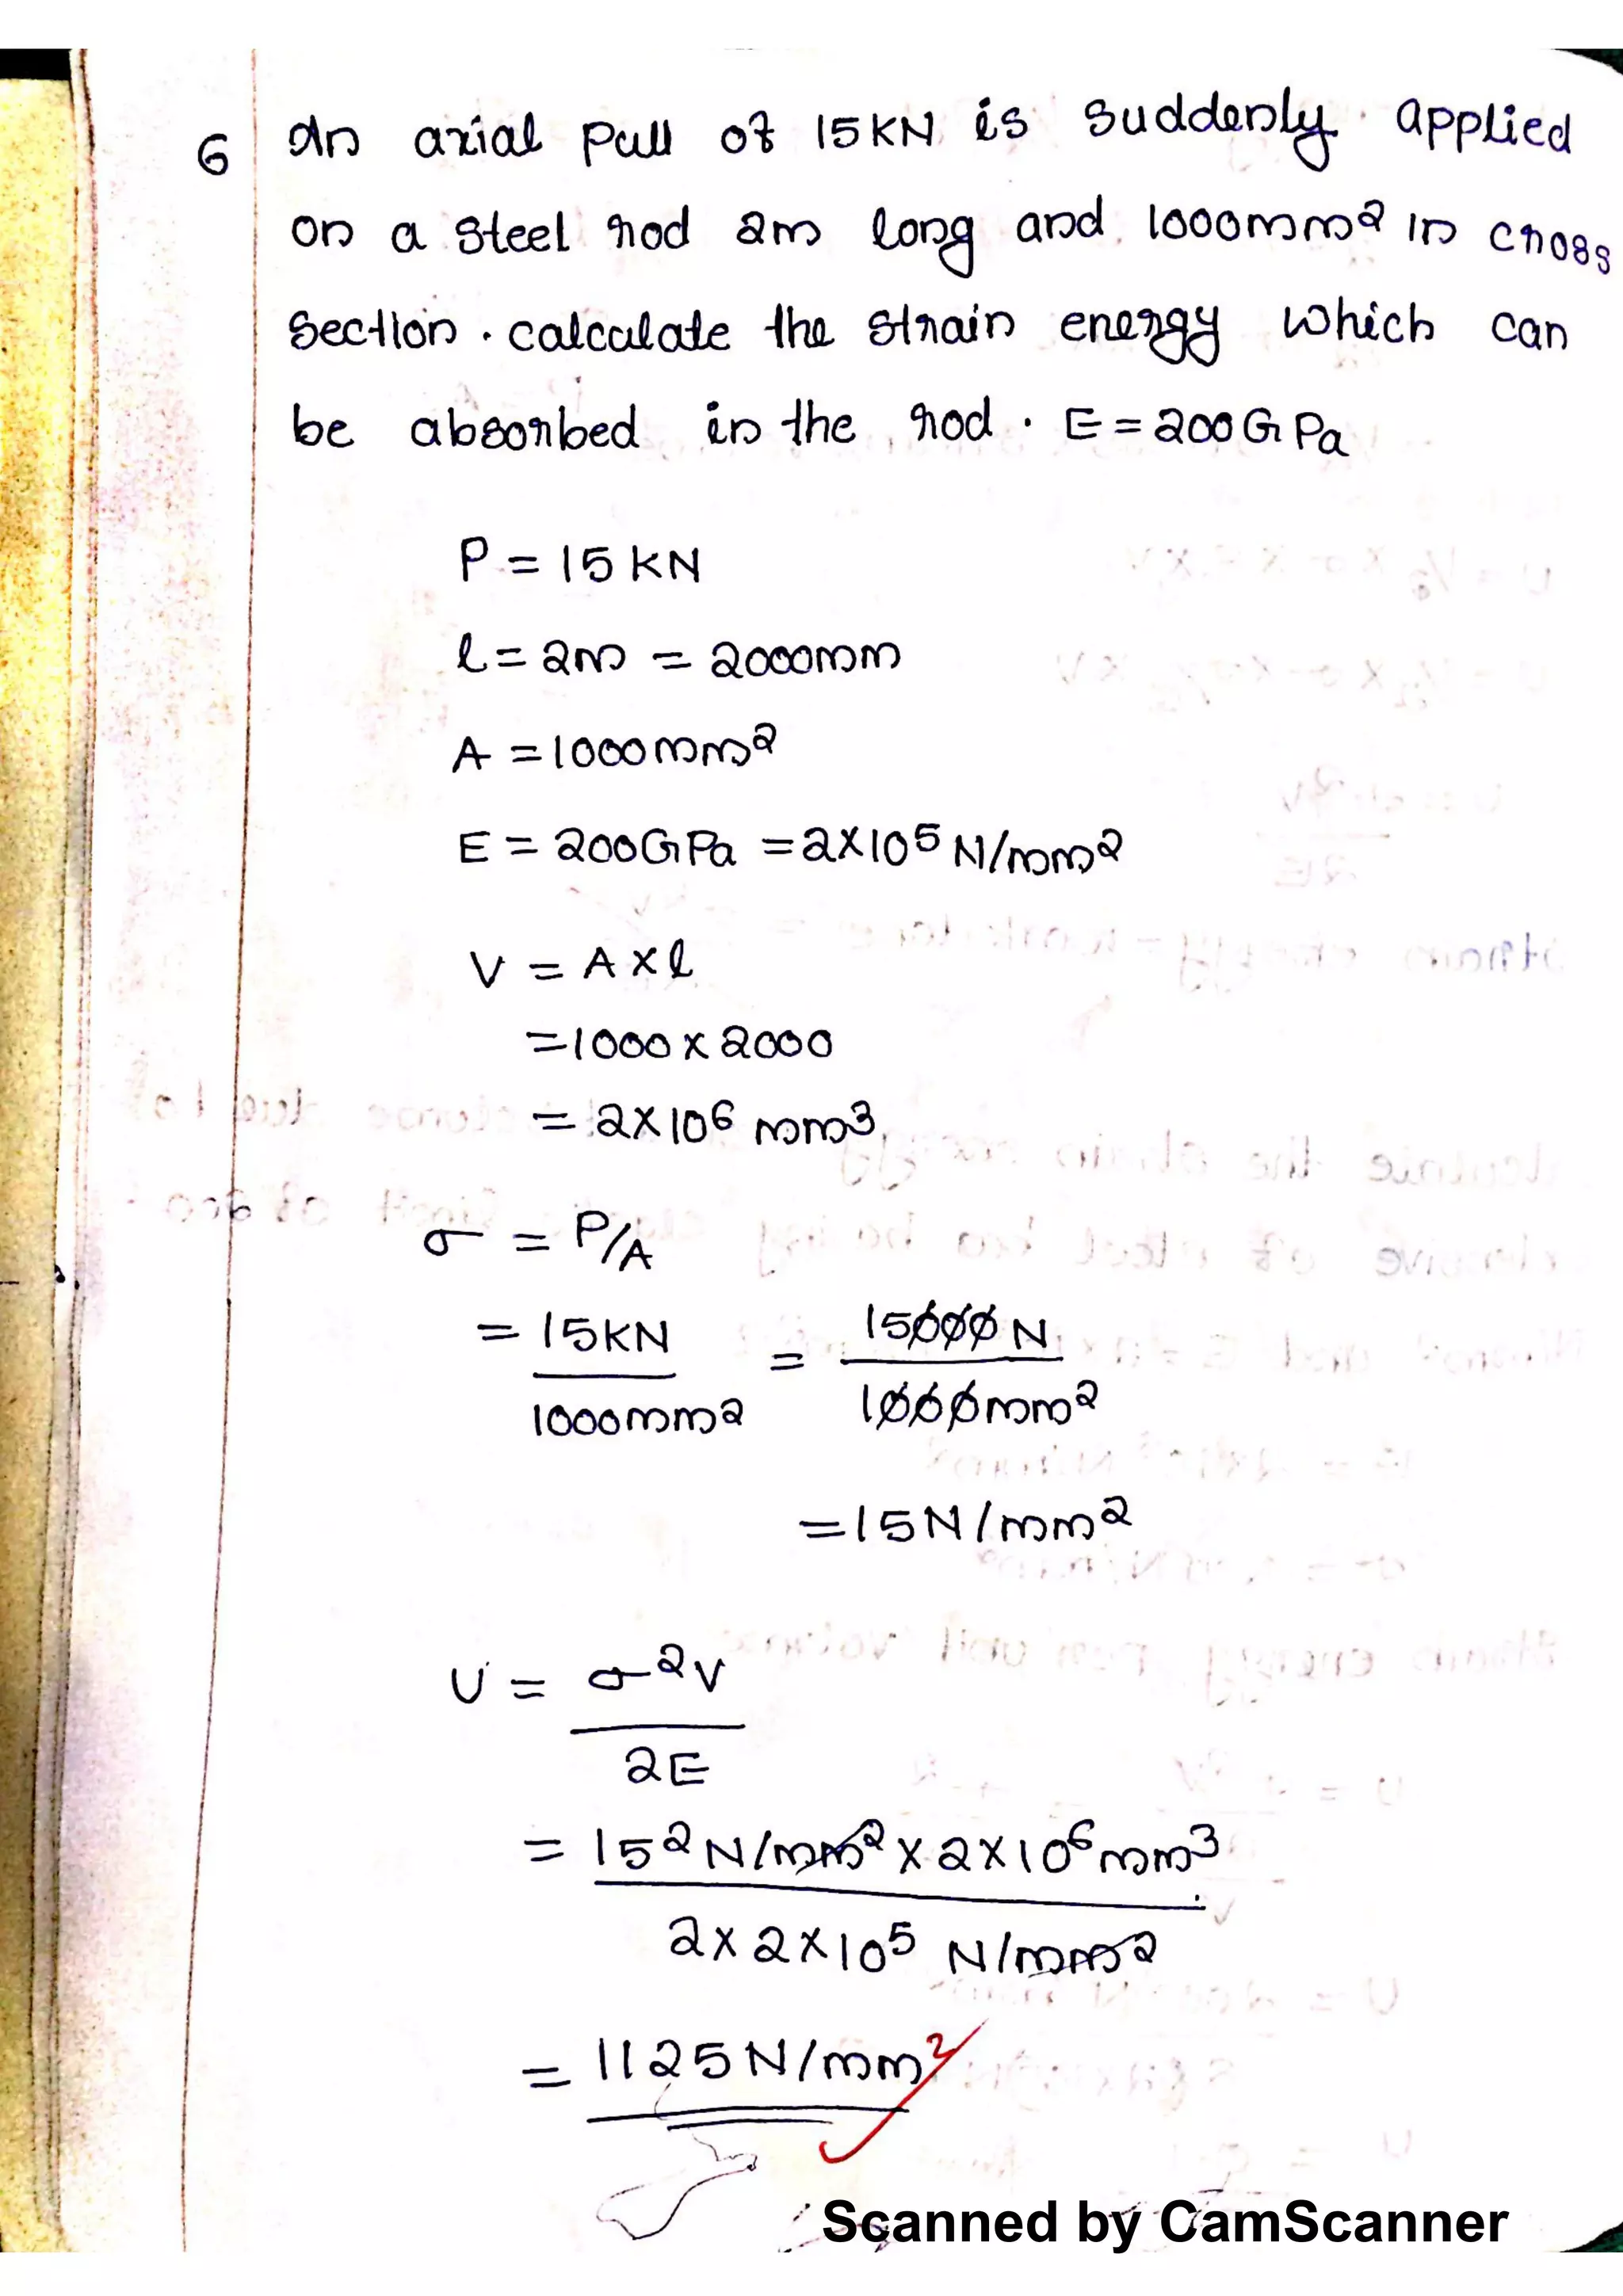 6 An axial Pull of 15KN is suddenly applied
on a steel rod 2m long and 1000mm² in cross
section. calculate the strain energy which can
be absorbed in the rod. E = 200GPa
P = 15 KN
l = 2m = 2000mm
A = 1000mm²
E = 200GPa = 2×10⁵ N/mm²
V = A×l
= 1000 × 2000
= 2×10⁶ mm³
σ = P/A
= 15KN / 1000mm² = 15000 N / 1000mm²
= 15N/mm²
U = σ²V / 2E
= 15² N/mm² × 2×10⁶ mm³ / 2×2×10⁵ N/mm²
= 1125 N/mm²
Scanned by CamScanner